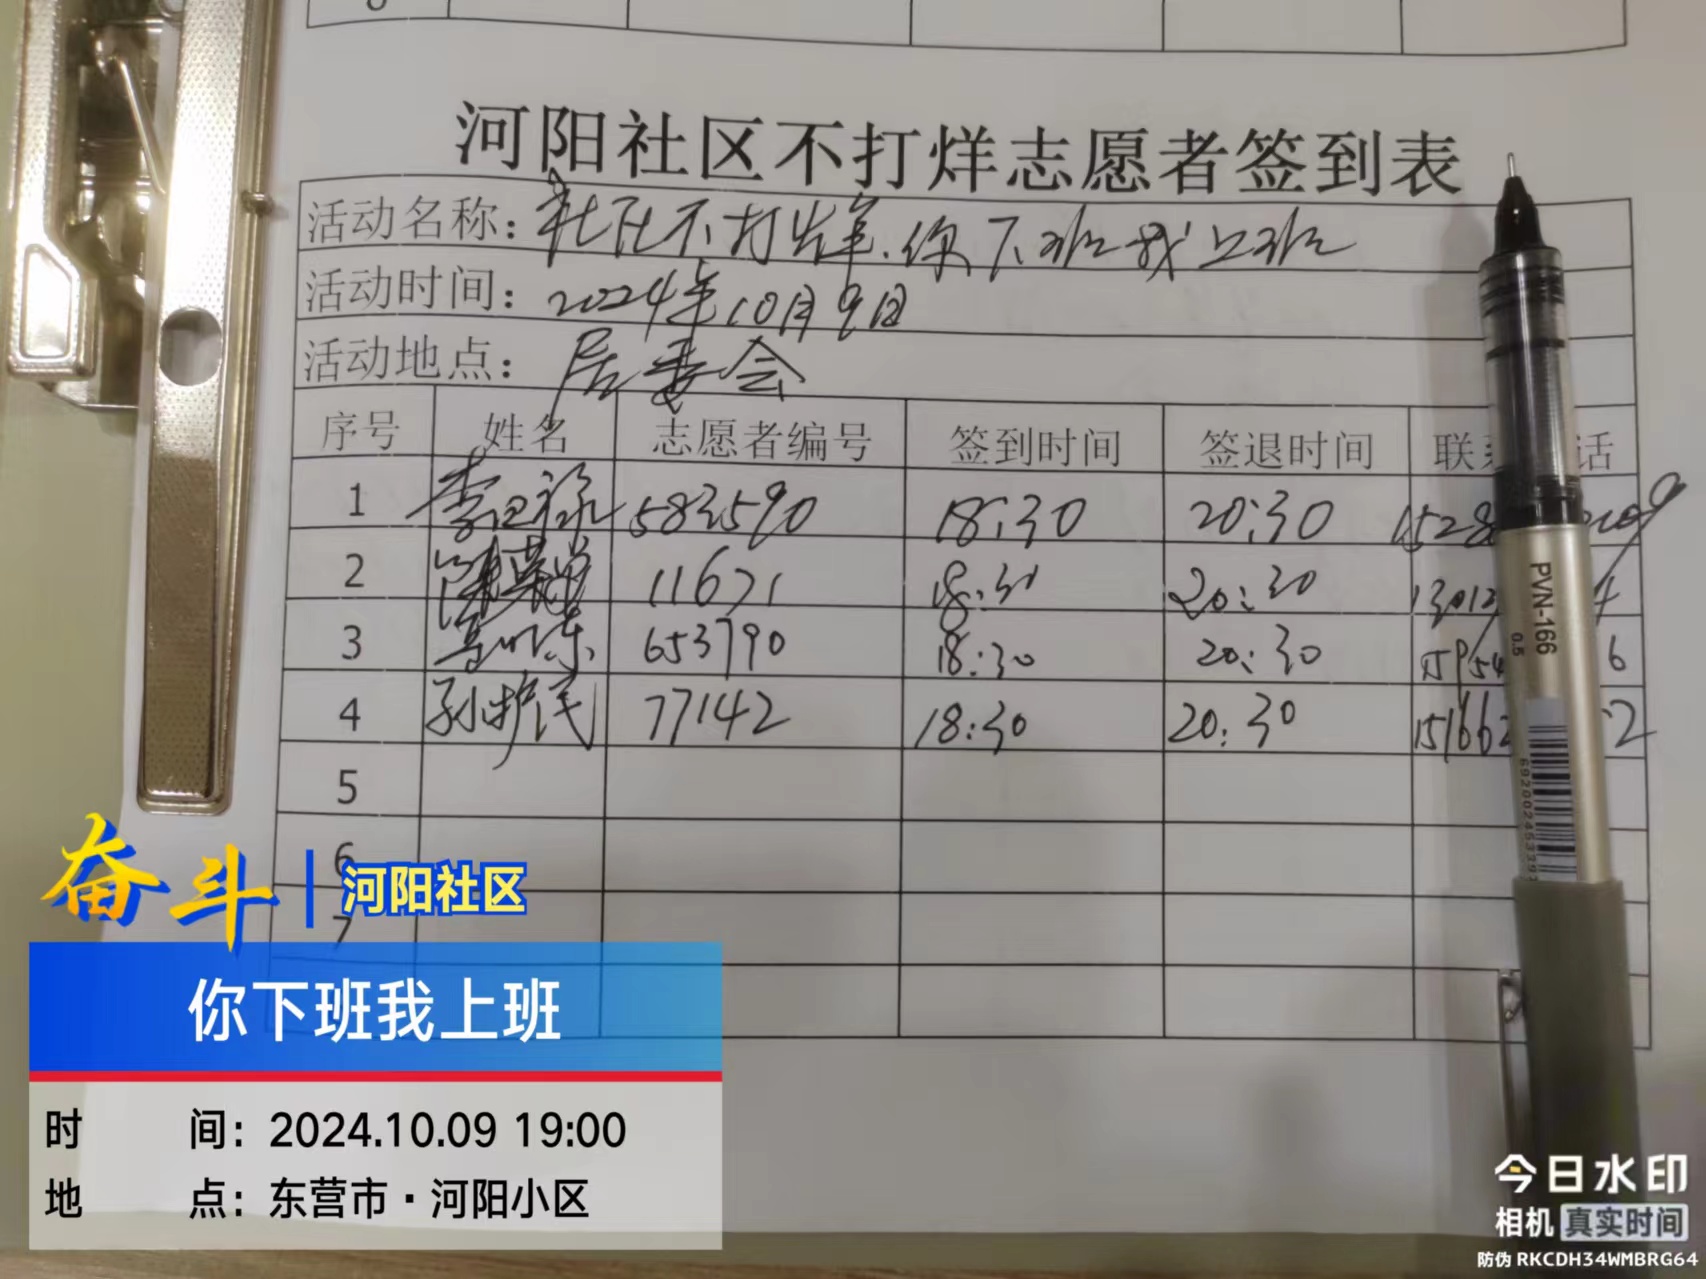 河阳社区不打烊志愿者签到表
活动名称：社区不打烊.你下班我上班
活动时间：2024年10月9日
活动地点：居委会
序号 姓名 志愿者编号 签到时间 签退时间 联 话
1 583590 18:30 20:30 1528
2 11671 18:30 20:30
3 653790 18:30 20:30 6
4 孙护民 77142 18:30 20:30 2
5
6
7
奋斗 河阳社区
你下班我上班
时 间：2024.10.09 19:00
地 点：东营市·河阳小区
PVN-166
0.5
今日水印
相机 真实时间
防伪 RKCDH34WMBRG64